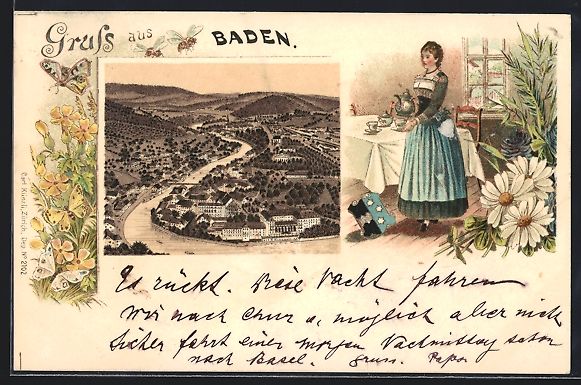 Gruss aus BADEN.
Carl Künzli, Zürich. Dep. No 2102
Es rückt. Diese Nacht fahren
Wir nach Chur u, möglich aber nicht
Sicher fahrt einer morgen Nachmittag schon
nach Basel. Gruss. Papa